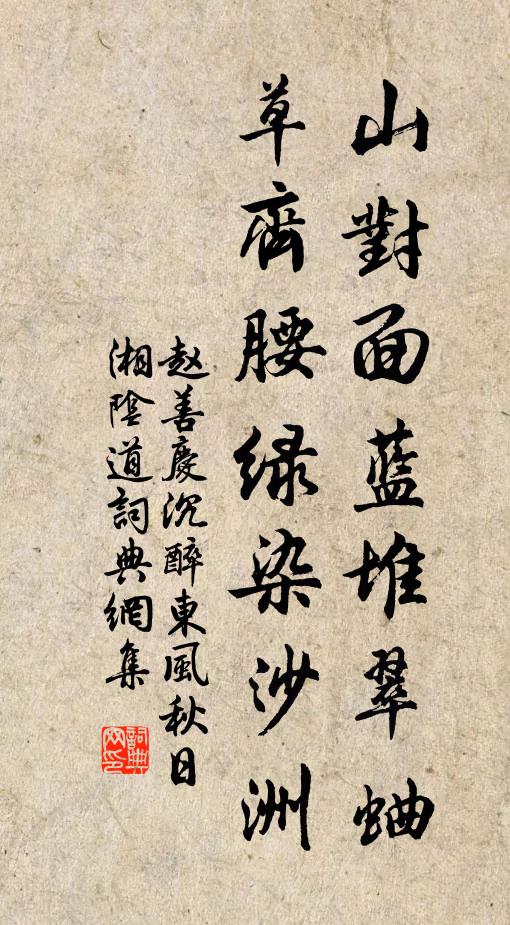 山對面藍堆翠蛐
草齊腰绿染沙洲
赵善慶沉醉東風秋日
湘陰道詞典網集
詞典
网印